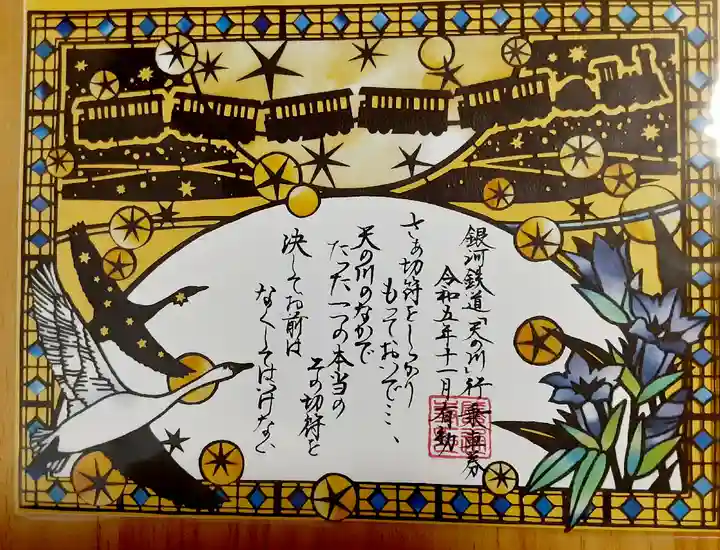 銀河鉄道「天の川」行 乗車券
令和五年十一月 有効
さぁ切符をしっかり
もっておいで…、
天の川のなかで
たった一つの本当の
その切符を
決してお前は
なくしてはいけない